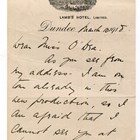 LAMB'S HOTEL, LIMITED
Dundee March
Dear Miss O'Dea:
As you see from
my address I am on
tour already in this
new production, so I
am afraid that I
cannot see you at